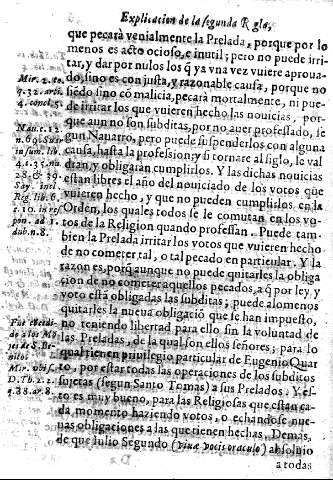 Explicacion de la segunda Rgla,
que pecarà venialmente la Prelada, porque por lo
menos es acto ocioso, e inutil; pero no puede irri-
tar, y dar por nulos los q̃ ya vna vez vuiere aproua-
do, sino es con justa, y razonable causa, porque no
siẽdo sino cõ malicia, pecarà mortalmente, ni pue-
de irritar los que vuieren hecho las nouicias, por-
que aun no son subditas, por no auer professado, se
gun Nauarro, pero puede suspenderlos con alguna
causa, hasta la profession; y si tornare al siglo, le val
dràn, y obligaràn cumplirlos. Y las dichas nouicias
estan libres el año del nouiciado de los votos que
vuieren hecho, y que no pueden cumplirlos en la
Orden, los quales todos se le comutan en los vo-
tos de la Religion quando professan. Puede tam-
bien la Prelada irritar los votos que vuieren hecho
de no cometer tal, o tal pecado en particular. Y la
razon es, porq̃ aunque no puede quitarles la obliga
cion de no cometer aquellos pecados, a q̃ por ley, y
voto està obligadas las subditas; puede alomenos
quitarles la nueua obligaciõ que se han impuesto,
no teniendo libertad para ello sin la voluntad de
las Preladas, de la qual son ellos señores; para lo
qual tienen priuilegio particular de Eugenio Quar
to, por estar todas las operaciones de los subditos
sujetas (segun Santo Tomas) a sus Prelados. Y es-
to es muy bueno, para las Religiosas que estan ca-
da momento haziendo votos, o echandose nue-
uas obligaciones a las que tienen hechas. Demàs,
de que Iulio Segundo (viuæ vocis oraculo) absoluio
a todas
Mir. 2. to.
q. 32. arti.
4. concl. 5.
Nau. c. 12.
n. 69. Suar
in sum. lib.
4. 1. 35. nu.
28. & 39.
Say. incl.
Reg. lib. 6.
c. 10. Tru-
dub. n. 8.
Mir. vbi s.
D. Th. 2. 2.
q. 38. ar. 8.